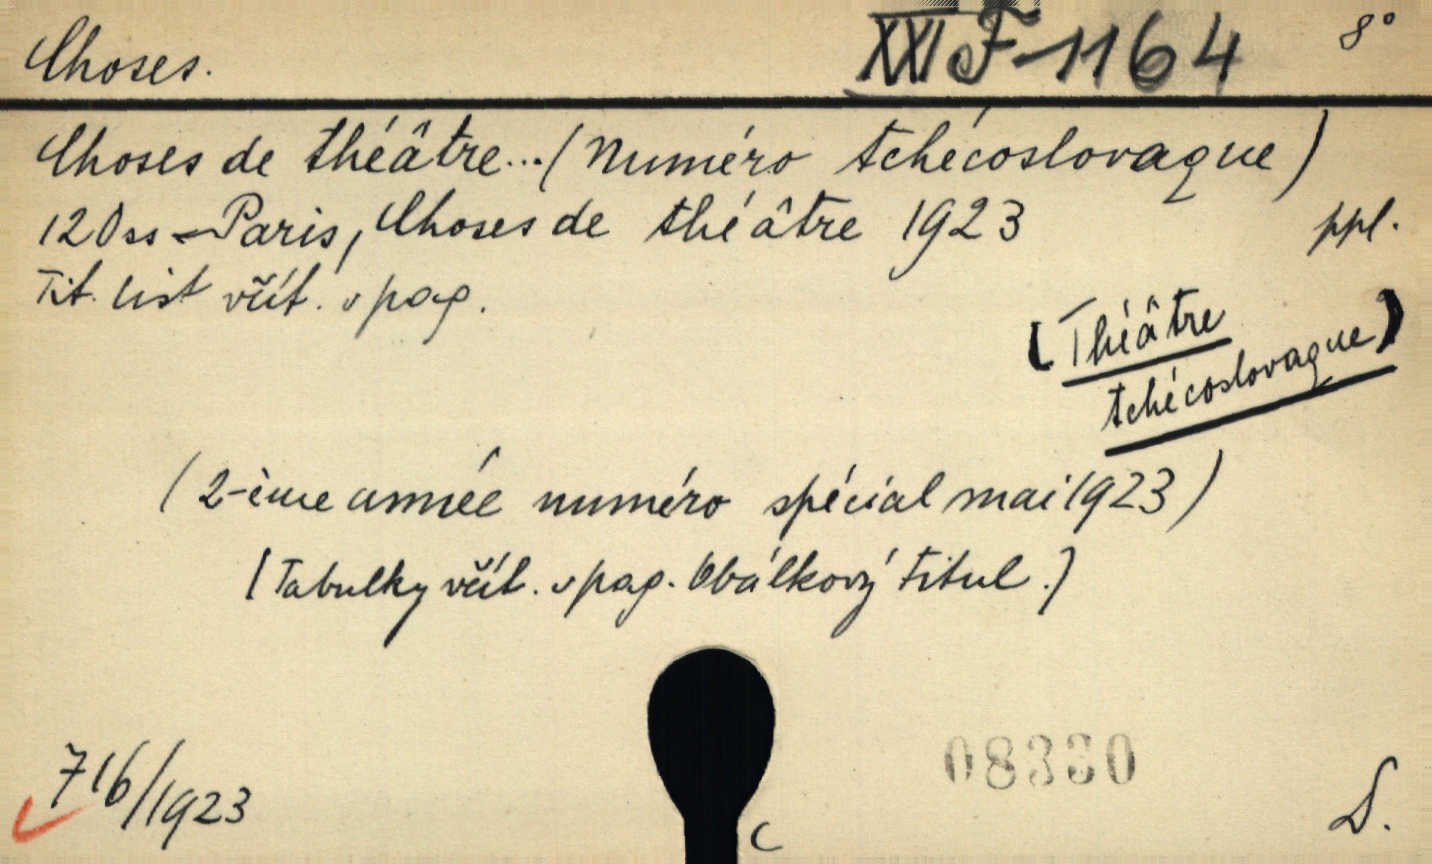 Choses. XXI F-1164 8°
Choses de théâtre...(Numéro tchécoslovaque)
120 ss - Paris, Choses de théâtre 1923 ppl.
Tit. list včít. v pag.
(Théâtre
tchécoslovaque)
(2-ème année numéro spécial mai 1923)
(Tabulky včít. v pag. Obálkový titul.)
716/1923
08330
D.
C